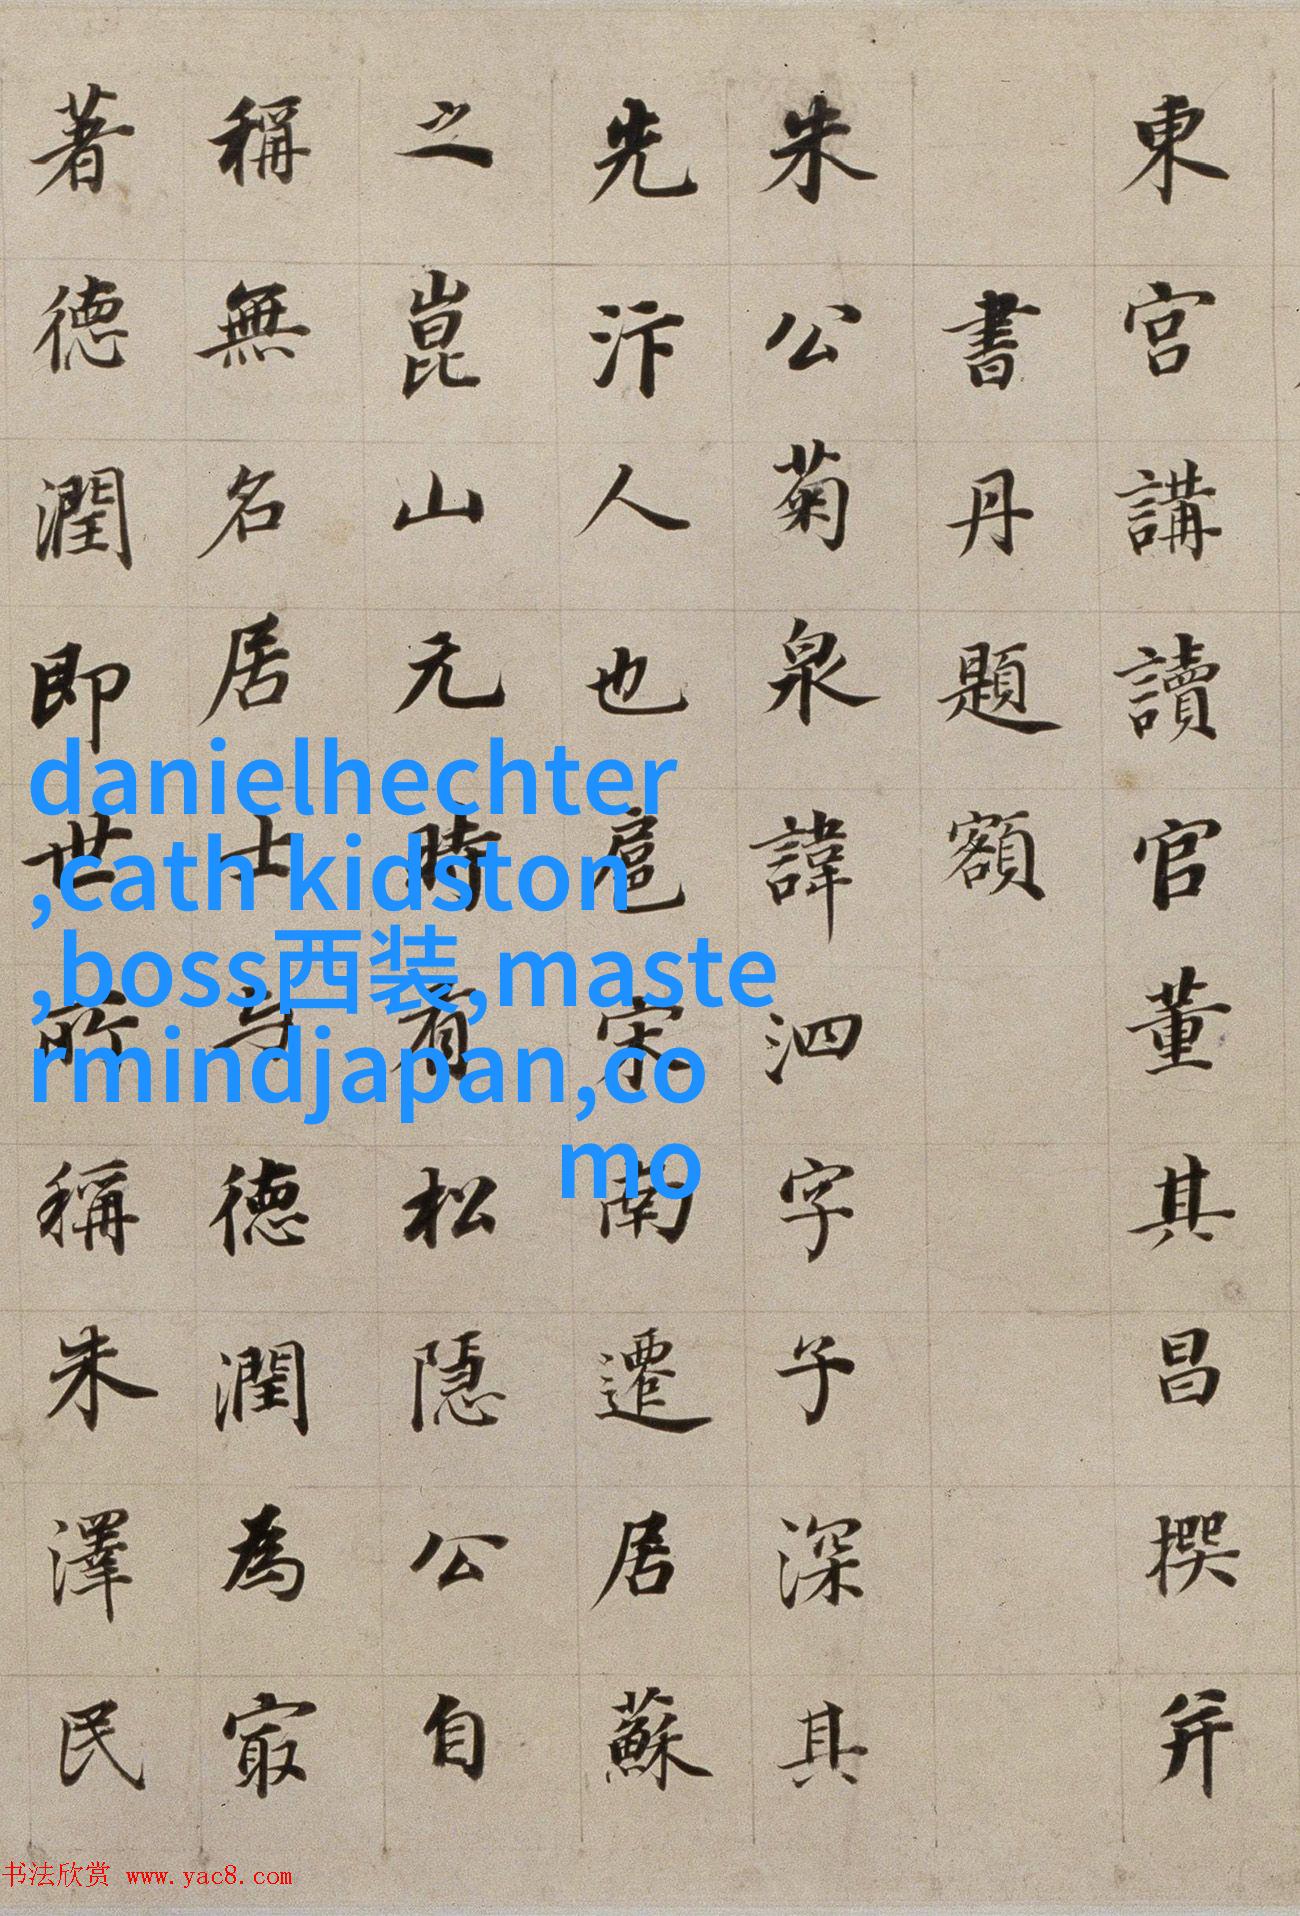 東宮講讀官董其昌撰并
書丹題額
朱公菊泉諱泗字子深其
先汴人也扈宋南遷居蘇
之崑山元時有松隱公自
稱無名居士与德潤為冣
著德潤即世所稱朱澤民
danielhechter
,cath kidston
,boss西装,maste
rmindjapan,co
mo
书法欣赏 www.yac8.com